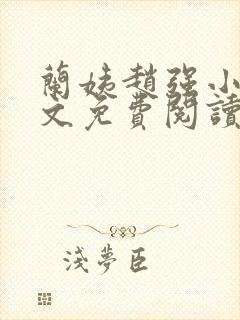 蘭姨趙強小
文免費閱讀
淺夢臣